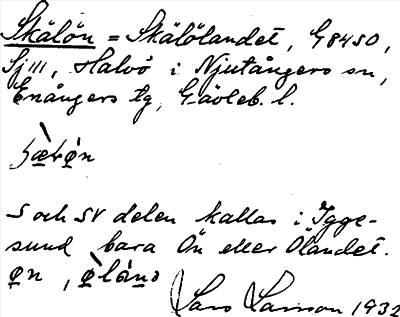 Skälön = Skälölandet, G8450,
Sj111, Halvö i Njutångers sn,
Enångers tg, Gävleb. l.
S och SV delen kallas i Igge-
sund bara Ön eller Ölandet.
øn, øland
Lars Larsson 1932